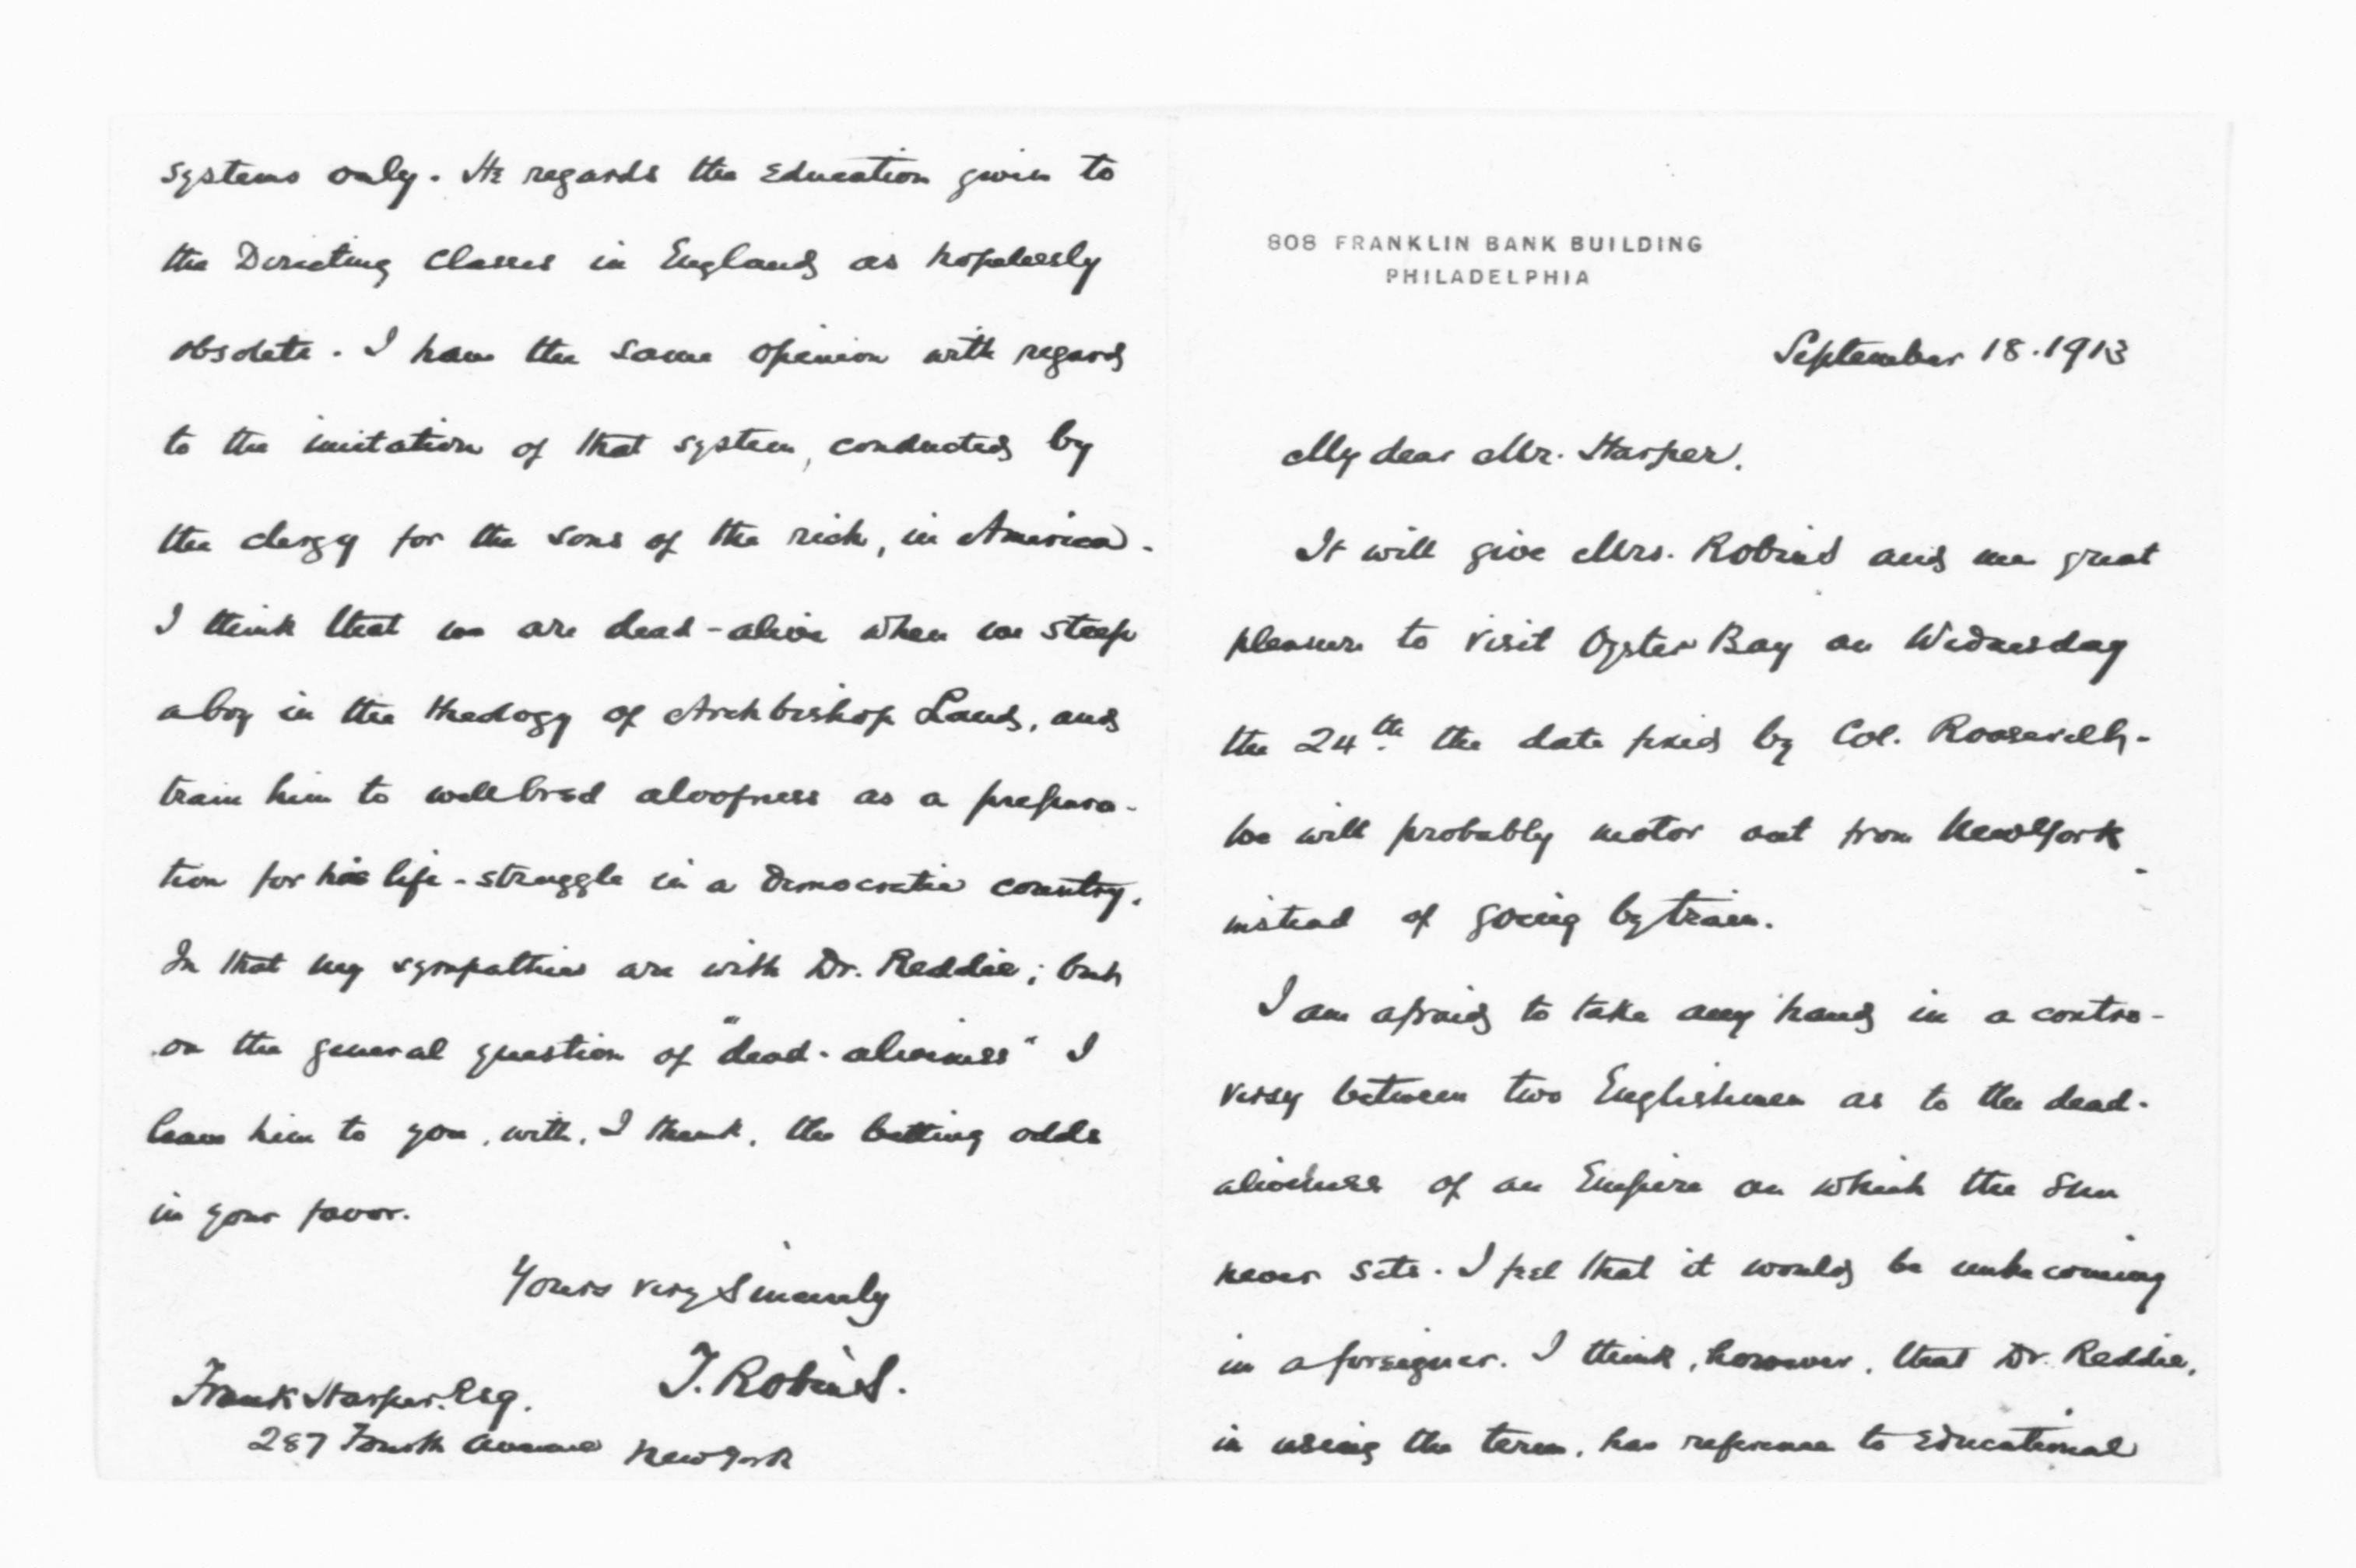 808 FRANKLIN BANK BUILDING
PHILADELPHIA
September 18. 1913
My dear Mr. Harper.
It will give Mrs. Robins and me great
pleasure to visit Oyster Bay on Wednesday
the 24th. the date fixed by Col. Roosevelt.
We will probably motor out from New York
instead of going by train.
I am afraid to take any hand in a contro-
versy between two Englishmen as to the dead-
aliveness of an Empire on which the sun
never sets. I feel that it would be unbecoming
in a foreigner. I think, however, that Dr. Reddie,
in using the term, has reference to Educational
systems only. He regards the Education given to
the Directing Classes in England as hopelessly
obsolete. I have the same opinion with regard
to the imitation of that system, conducted by
the clergy for the sons of the rich, in America.
I think that we are dead-alive when we steep
a boy in the theology of Archbishop Laud, and
train him to wellbred aloofness as a prepara-
tion for his life-struggle in a Democratic country.
In that my sympathies are with Dr. Reddie; but
on the general question of "dead-aliveness" I
leave him to you, with, I think, the betting odds
in your favor.
Yours very Sincerely
T. Robins.
Frank Harper. Esq.
287 Fourth Avenue New York